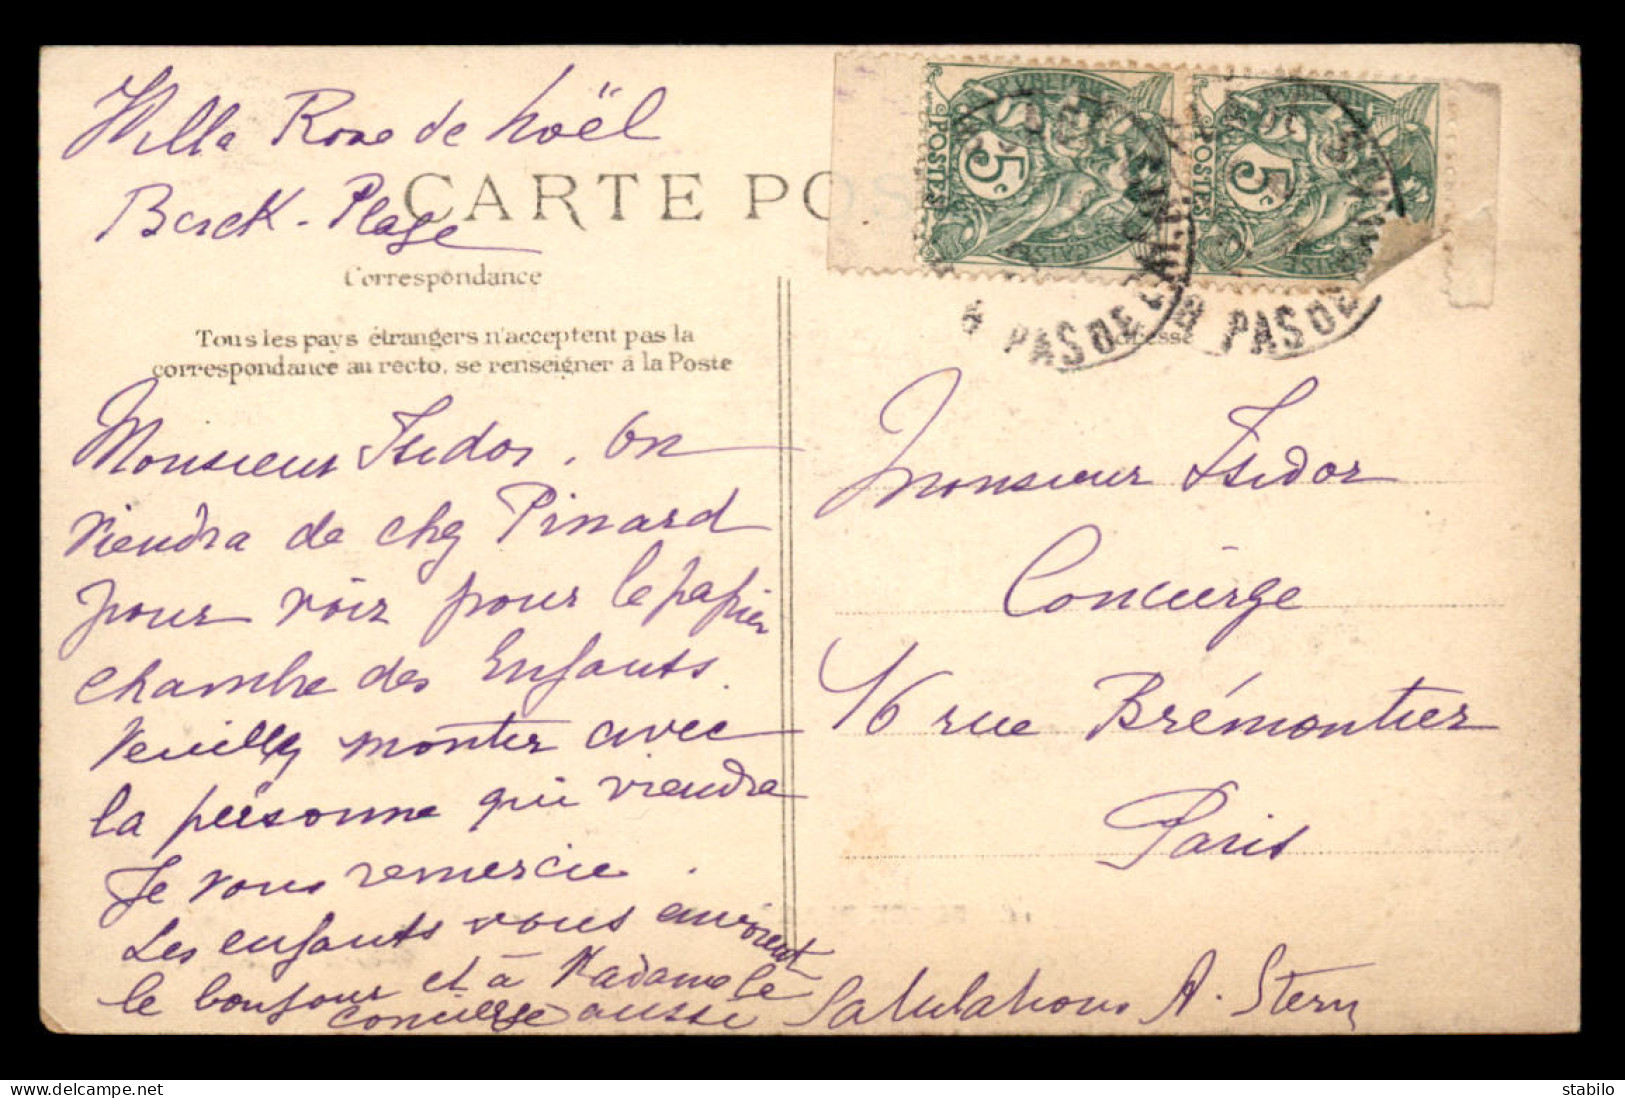 Villa Rose de Noël
Berck-Plage
CARTE POS
Correspondance
Tous les pays étrangers n'acceptent pas la
correspondance au recto, se renseigner à la Poste
Monsieur Isidor, on
viendra de chez Pinard
pour voir pour le papier
chambre des Enfants.
Veuillez monter avec
la personne qui viendra
Je vous remercie.
Les enfants vous envoient
le bonjour et à Madame le
concierge aussi Salutations A. Stern
POSTES 5c
POSTES 5c
PAS DE CALAIS
PAS DE
Adresse
Monsieur Isidor
Concierge
16 rue Brémontier
Paris
stabilo
delcampe.net